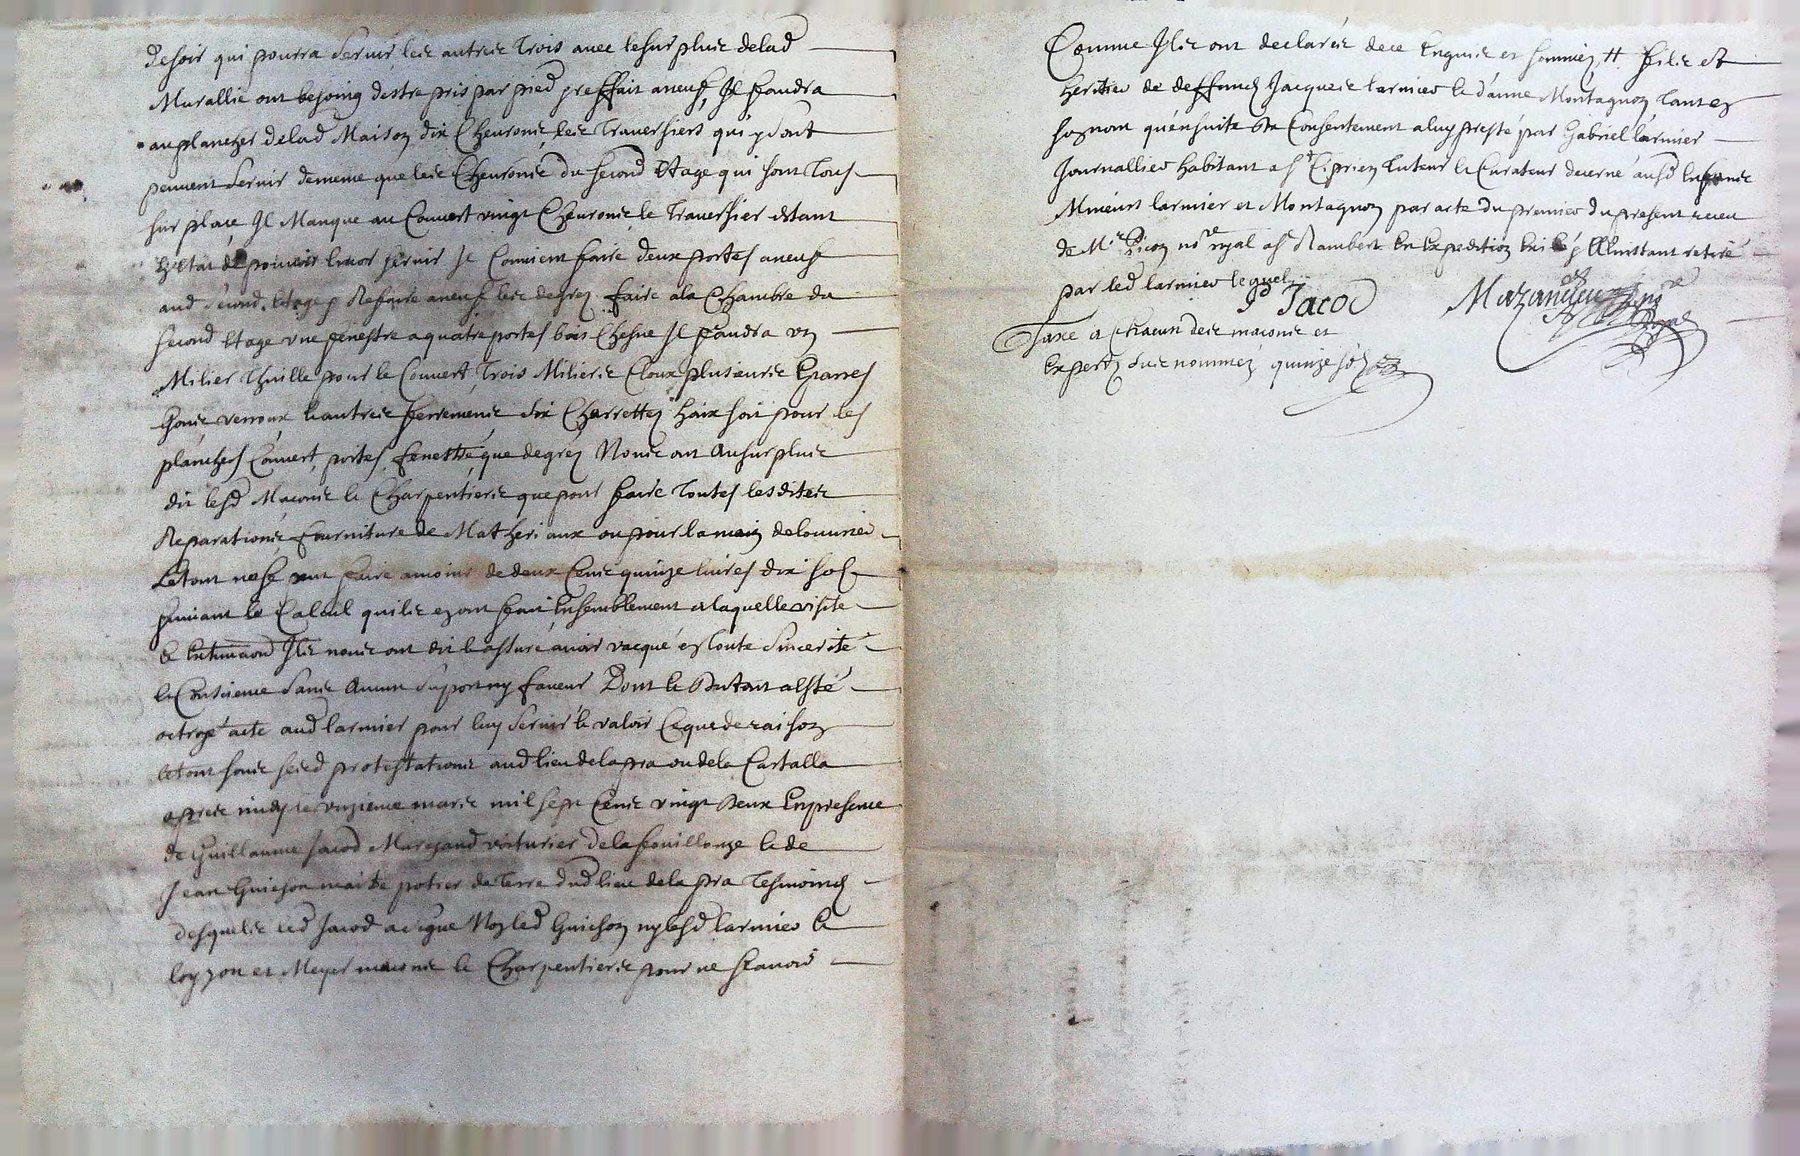 de soir qui pourra servir les autres trois avec le surplus de lad
Murallie ont besoing destre pris par pied et reffait a neuf Il faudra
au plancher de lad Maison dix Chevrons les traversiers qui y sont
peuvent servir de meme que les Chevrons du second Etage qui sont tous
sur place Il Manque au Couvert vingt Chevrons le traversier estant
en Etat de pouvoir encor servir Il Convient faire deux portes a neuf
aud second Etage Refaire a neuf les degrez faire a la Chambre du
second Etage une fenestre a quatre portes bois Chesne Il faudra un
Milier Thuille pour le Couvert trois Miliers Cloux plusieurs Eparres
Gons verroux et autres ferrements dix Charrettes soit pour les
planchers Couvert, portes, fenestre, que degrez Nous ont au surplus
dit lesd Macons et Charpentiers que pour faire toutes lesdites
Reparations, fourniture de Matheriaux ou pour la main de louvrier
Le tout ne se peut faire a moins de deux Cents quinze livres dix sols
suivant le Calcul quils en ont fait Ensemblement a laquelle visite
& Estimaon Ils nous ont dit et assuré avoir vacqué en toute sincerité
et Conscience sans aucun suport ny faveur Dont et du tout a esté
octroyé acte aud larmier pour luy servir et valoir Ce que de raison
le tout sous sesd protestations aud lieu de la pra ou de la Cartalla
apres midy le unzieme mars mil sept Cents vingt deux En presence
de Guillaume Jacod Marchand voiturier de la fouillouze et de
Jean Guichon maitre potier de terre dud lieu de la pra tesmoins
desquels led Jacod a signe Non led Guichon ny lesd larmier &
loyzon et Meyer macons et Charpentiers pour ne scavoir
Comme Ils ont declaréz de ce Enquis et sommez # fils et
heritier de deffuncts Jacques larmier et danne Montagnon tant en
son nom quensuite du Consentement a luy presté par Gabriel larmier
Journallier habitant a St Ciprien tuteur et Curateur decerné ausd Enfants
Mineurs larmier et Montagnon par acte du premier du present receu
de Mr Picon nore royal a St Rambert En Expedition a l'Instant retiré
par led larmier lequel
Jacod
Taxe a Chacun des macons et
Expertz sus nommez quinze sols